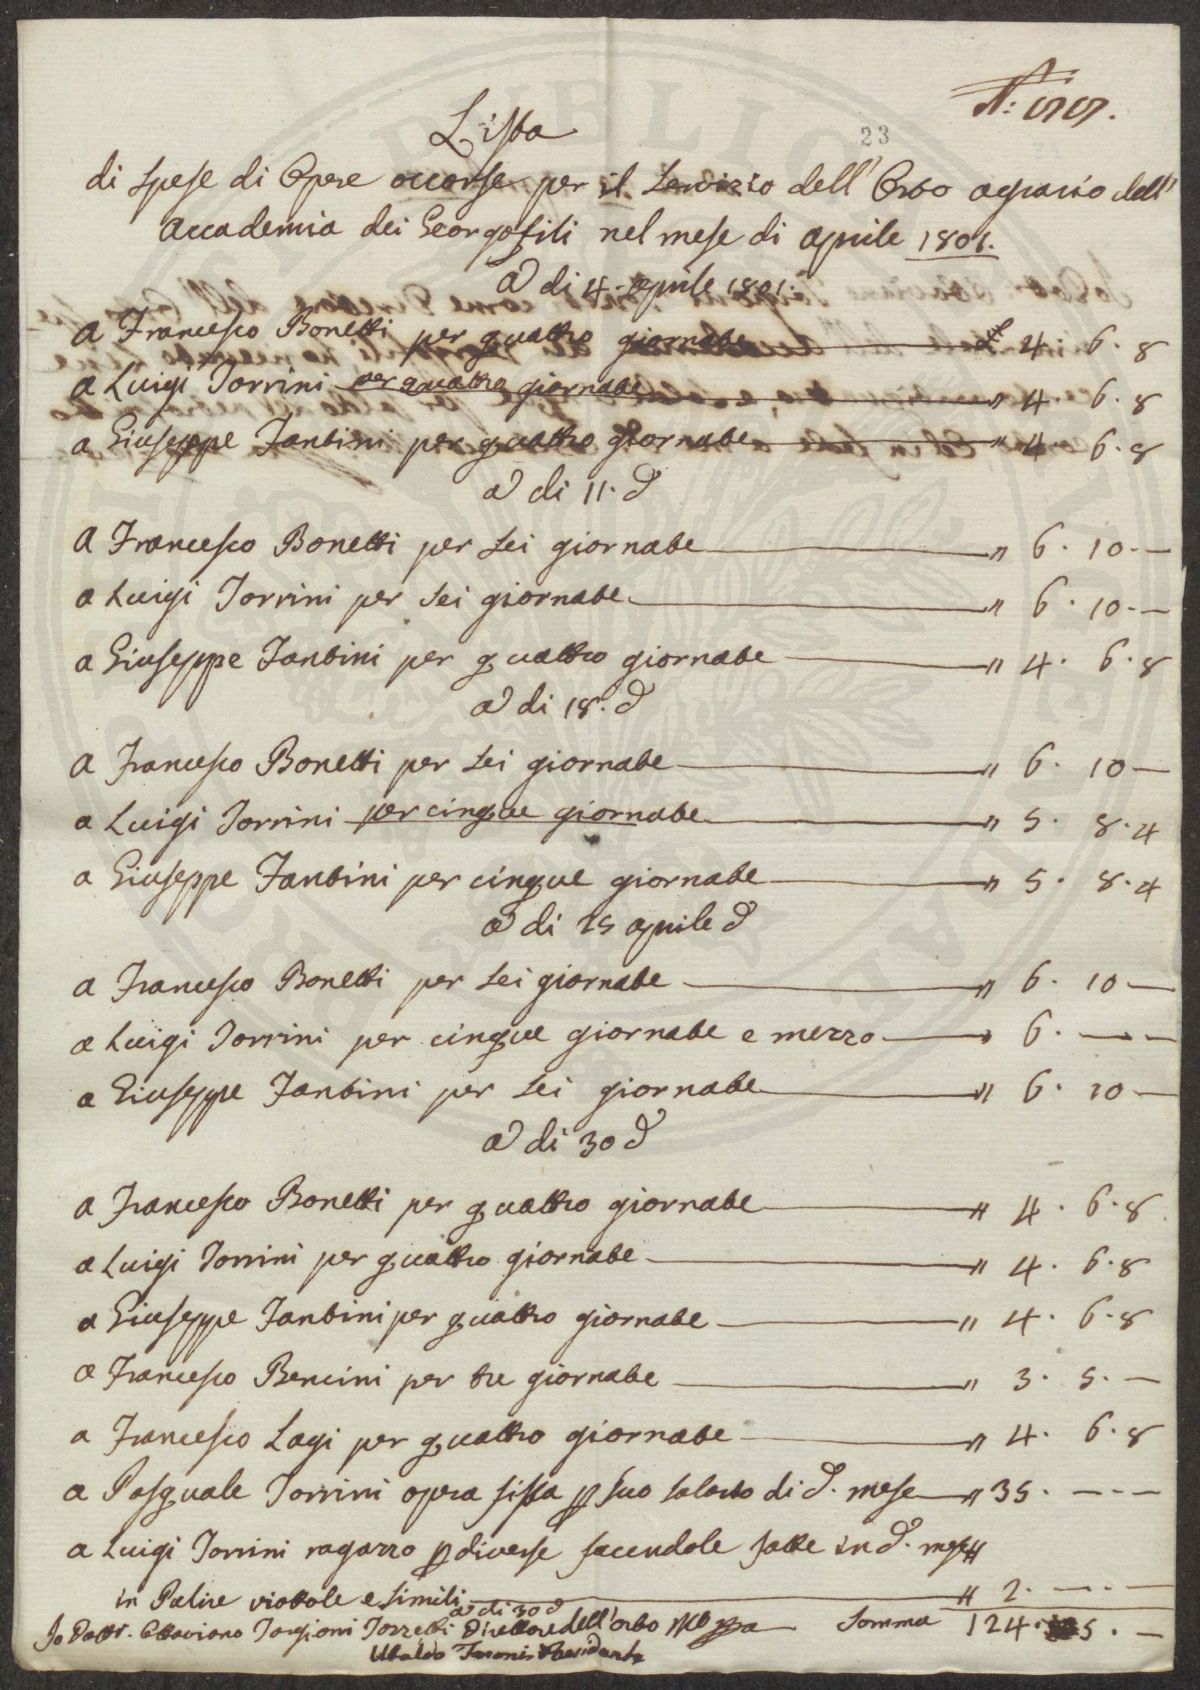 N: 
23
Lista
di spese di Opere occorse per il Servizio dell' Orto agrario dell'
Accademia dei Georgofili nel mese di aprile 1801.
A di 4. aprile 1801.
a Francesco Bonetti per quattro giornate £ 4 6. 8
a Luigi Torrini per quattro giornate " 4 6. 8
a Giuseppe Fantini per quattro giornate " 4 6. 8
A di 11. d
a Francesco Bonetti per sei giornate " 6. 10. —
a Luigi Torrini per sei giornate " 6. 10. —
a Giuseppe Fantini per quattro giornate " 4. 6. 8
A di 18. d
a Francesco Bonetti per sei giornate " 6. 10 —
a Luigi Torrini per cinque giornate " 5. 8. 4
a Giuseppe Fantini per cinque giornate " 5. 8. 4
A di 25 aprile d
a Francesco Bonetti per sei giornate " 6. 10 —
a Luigi Torrini per cinque giornate e mezzo " 6. — —
a Giuseppe Fantini per sei giornate " 6. 10 —
A di 30 d
a Francesco Bonetti per quattro giornate " 4. 6. 8
a Luigi Torrini per quattro giornate " 4. 6. 8
a Giuseppe Fantini per quattro giornate " 4. 6. 8
a Francesco Bencini per tre giornate " 3. 5. —
a Francesco Lagi per quattro giornate " 4. 6. 8
a Pasquale Torrini opera fissa p suo salario di d. mese " 35. — —
a Luigi Torrini ragazzo p diverse facendole fatte in d. mese "
in Pulire viottole e simili " 2. — —
a di 30 d
Io Dottr. Ottaviano Targioni Tozzetti Direttore dell'orto Somma 124. 5. —
Ubaldo Presidente